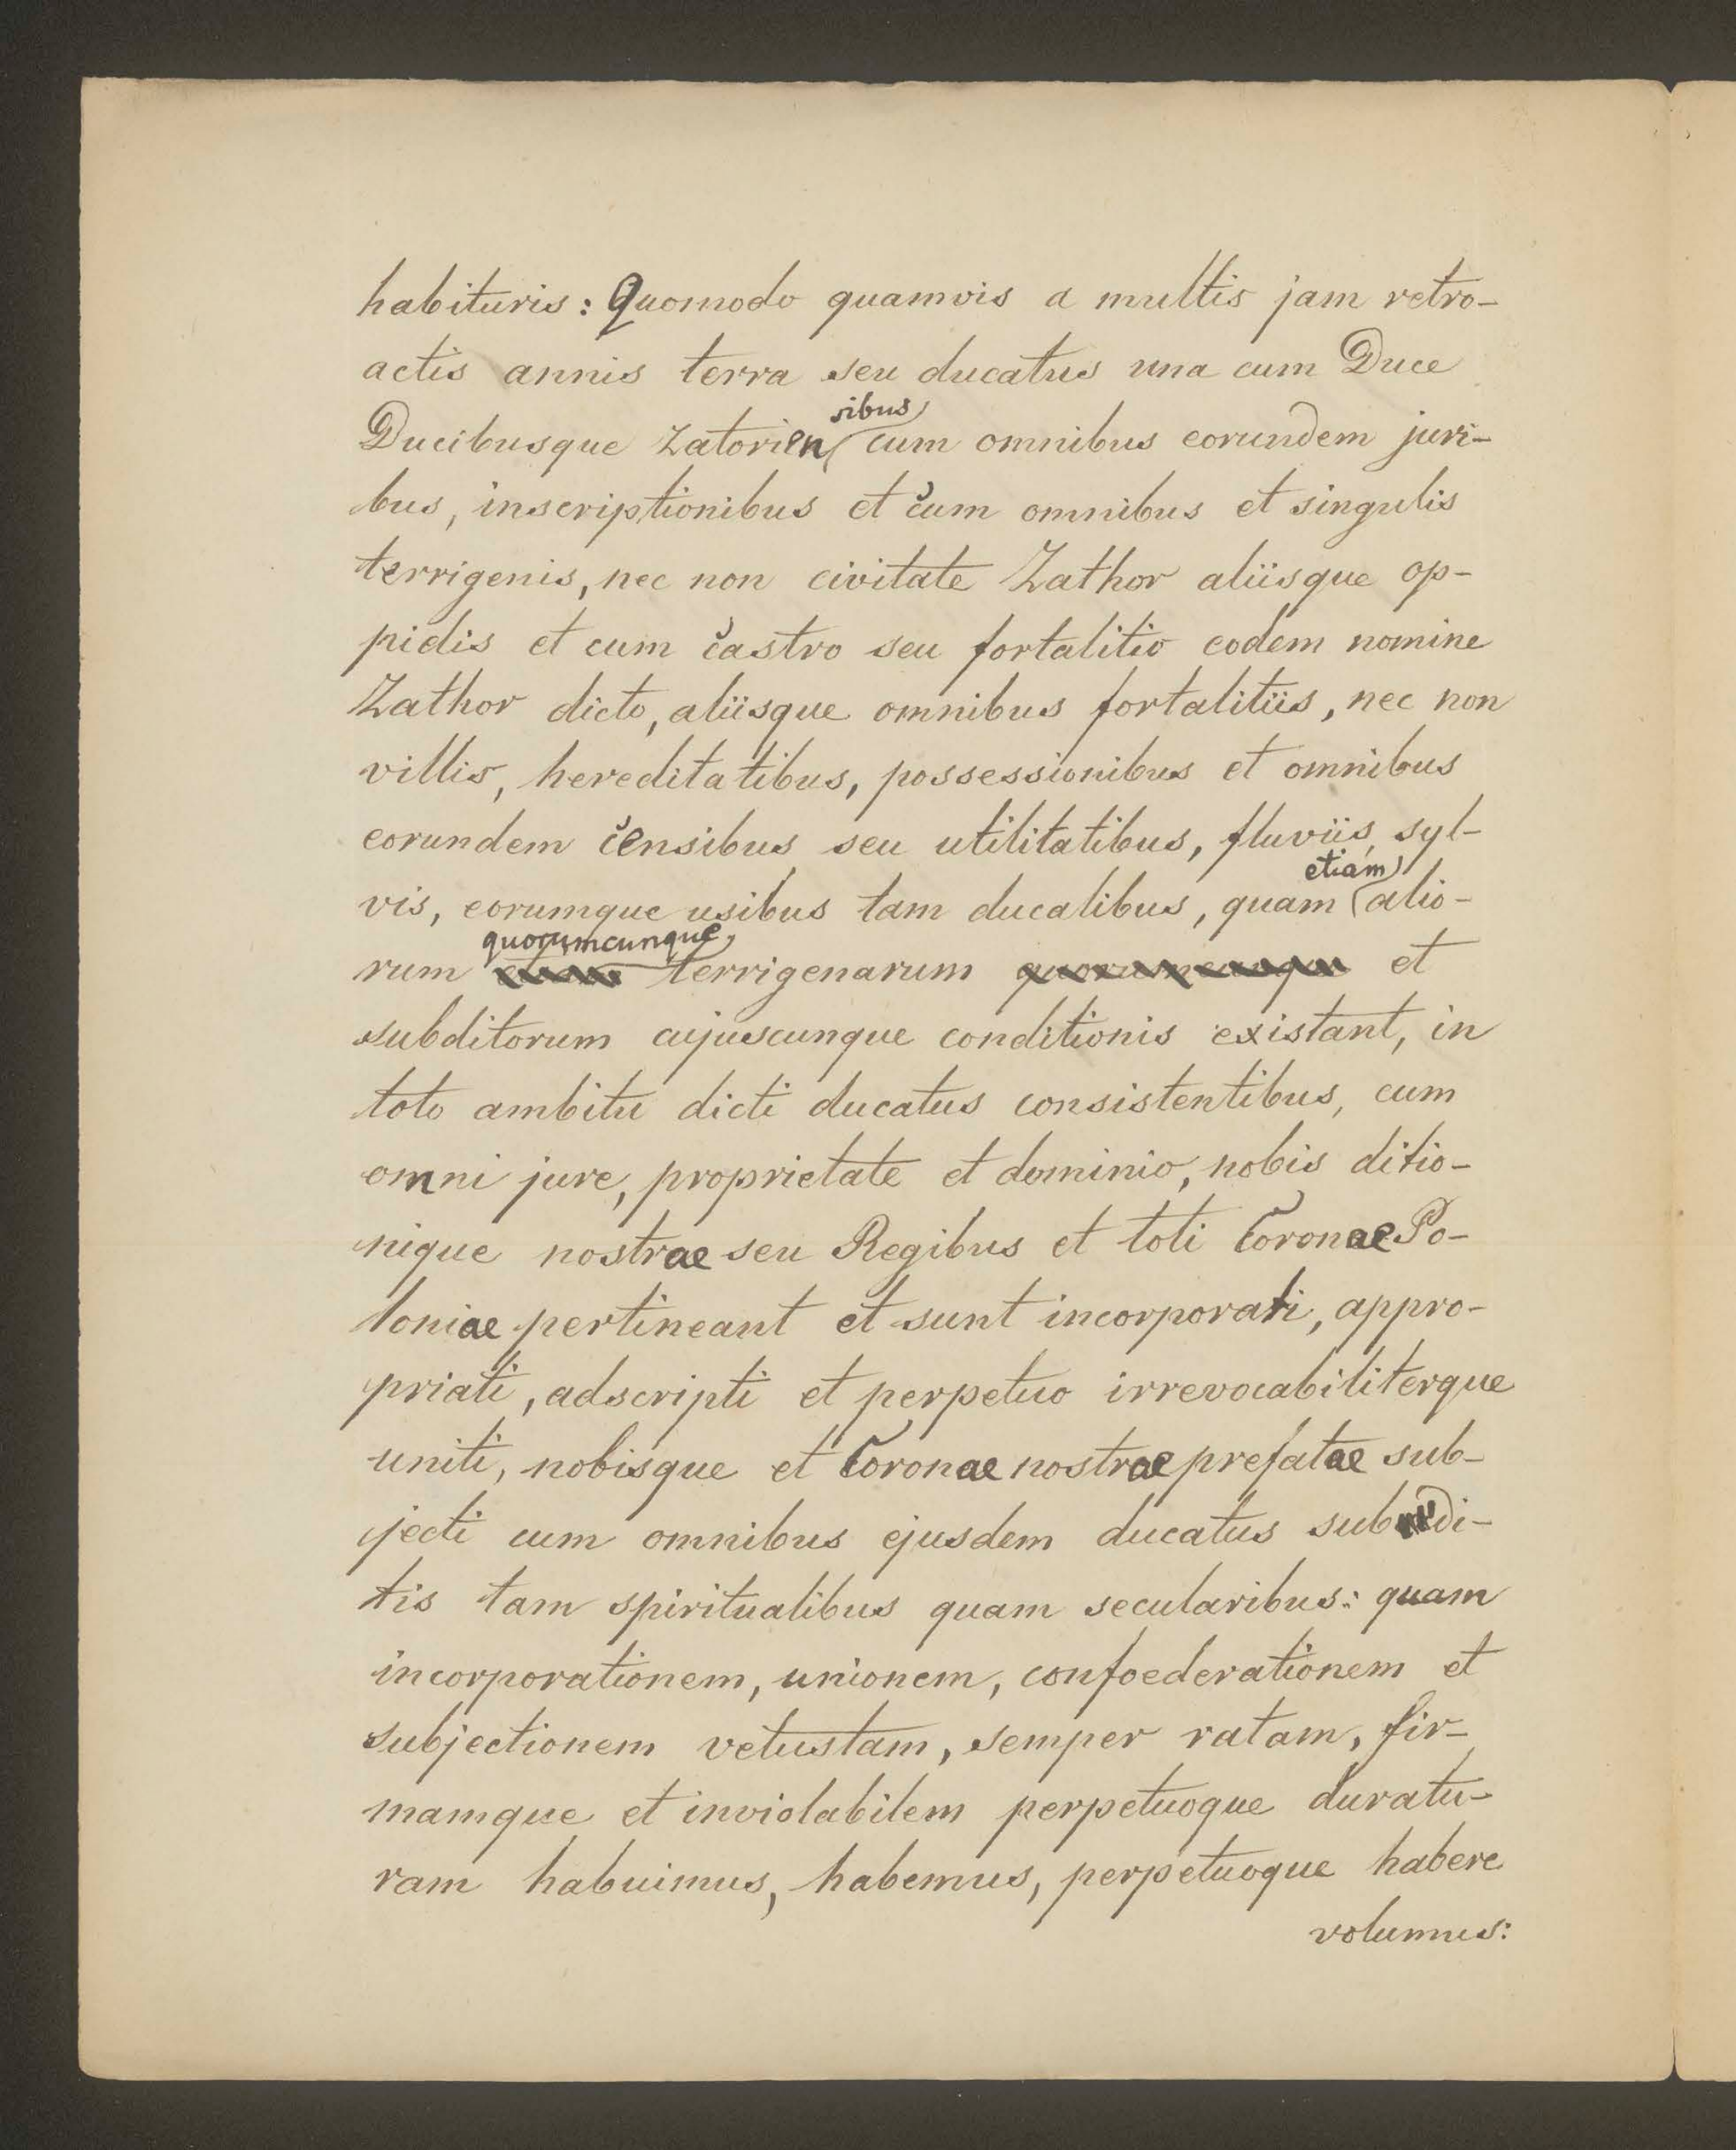 habituris: Quomodo quamvis a multis jam retro-
actis annis terra seu ducatus una cum Duce
Ducibusque Zatoriensibus cum omnibus eorundem juri-
bus, inscriptionibus et cum omnibus et singulis
terrigenis, nec non civitate Zathor aliisque op-
pidis et cum castro seu fortalitio eodem nomine
Zathor dicto, aliisque omnibus fortalitiis, nec non
villis, hereditatibus, possessionibus et omnibus
eorundem censibus seu utilitatibus, fluviis, syl-
vis, eorumque usibus tam ducalibus, quam etiam alio-
rum quorumcunque terrigenarum quorumcunque et
subditorum cujuscunque conditionis existant, in
toto ambitu dicti ducatus consistentibus, cum
omni jure, proprietate et dominio, nobis ditio-
nique nostrae seu Regibus et toti Coronae Po-
loniae pertineant et sunt incorporati, appro-
priati, adscripti et perpetuo irrevocabiliterque
uniti, nobisque et Coronae nostrae prefatae sub-
jecti cum omnibus ejusdem ducatus subdi-
tis tam spiritualibus quam secularibus: quam
incorporationem, unionem, confoederationem et
subjectionem vetustam, semper ratam, fir-
mamque et inviolabilem perpetuoque duratu-
ram habuimus, habemus, perpetuoque habere
volumus: